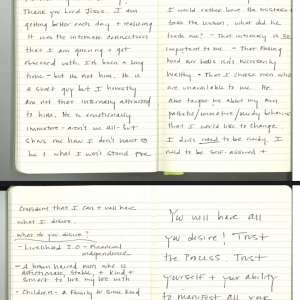 Thank you Lord Jesus. I am
getting better each day + realizing
it was the intimate connections
that I am queuing + get
obsessed with. Is he a
time - but he not him. He is
a sweet guy but I honestly
am not that internally attracted
to him. He is emotionally
immature - aren't we all - but
shows me how I don't want to
be + what I won't stand for
I would rather have the
take the lesson, what did he
teach me? - That intimacy is so
important to me. - That
and
healthy + that I choose men who
are unavailable to me. He
also taught me about my own
pathetic/immature/needy behaviors
that I would like to change.
I don't need to be needy, I
need to be self-assured +
confident that I can + will have
what I desire.
What do you desire?
- Livelihood 2.0 - financial
independence
- A brown haired man who is
affectionate, stable, + kind +
sincere to live my life with
- Children - a family of some kind
You will have all
you desire! Trust
the Process. Trust
yourself + your ability
to manifest all your